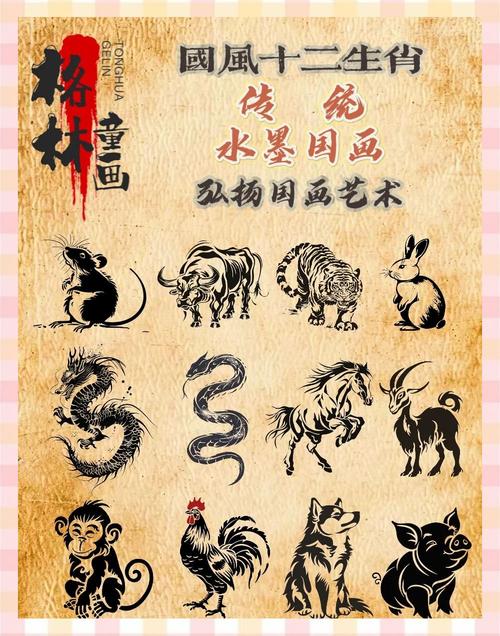 格林
童画
TONGHUA
GELIN
國風十二生肖
传 统
水墨国画
弘扬国画艺术